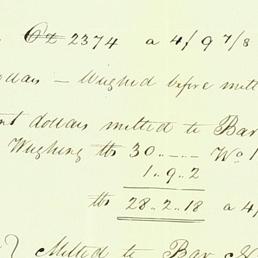 Oz 2374 a 4/9 7/8
dollars — Weighed before melt
nt dollars melted to Bar
Weighing lbs 30 .. .. — No 1
1 .. 9 .. 2
lbs 28 .. 2 .. 18 a 4/
Melted to Bar